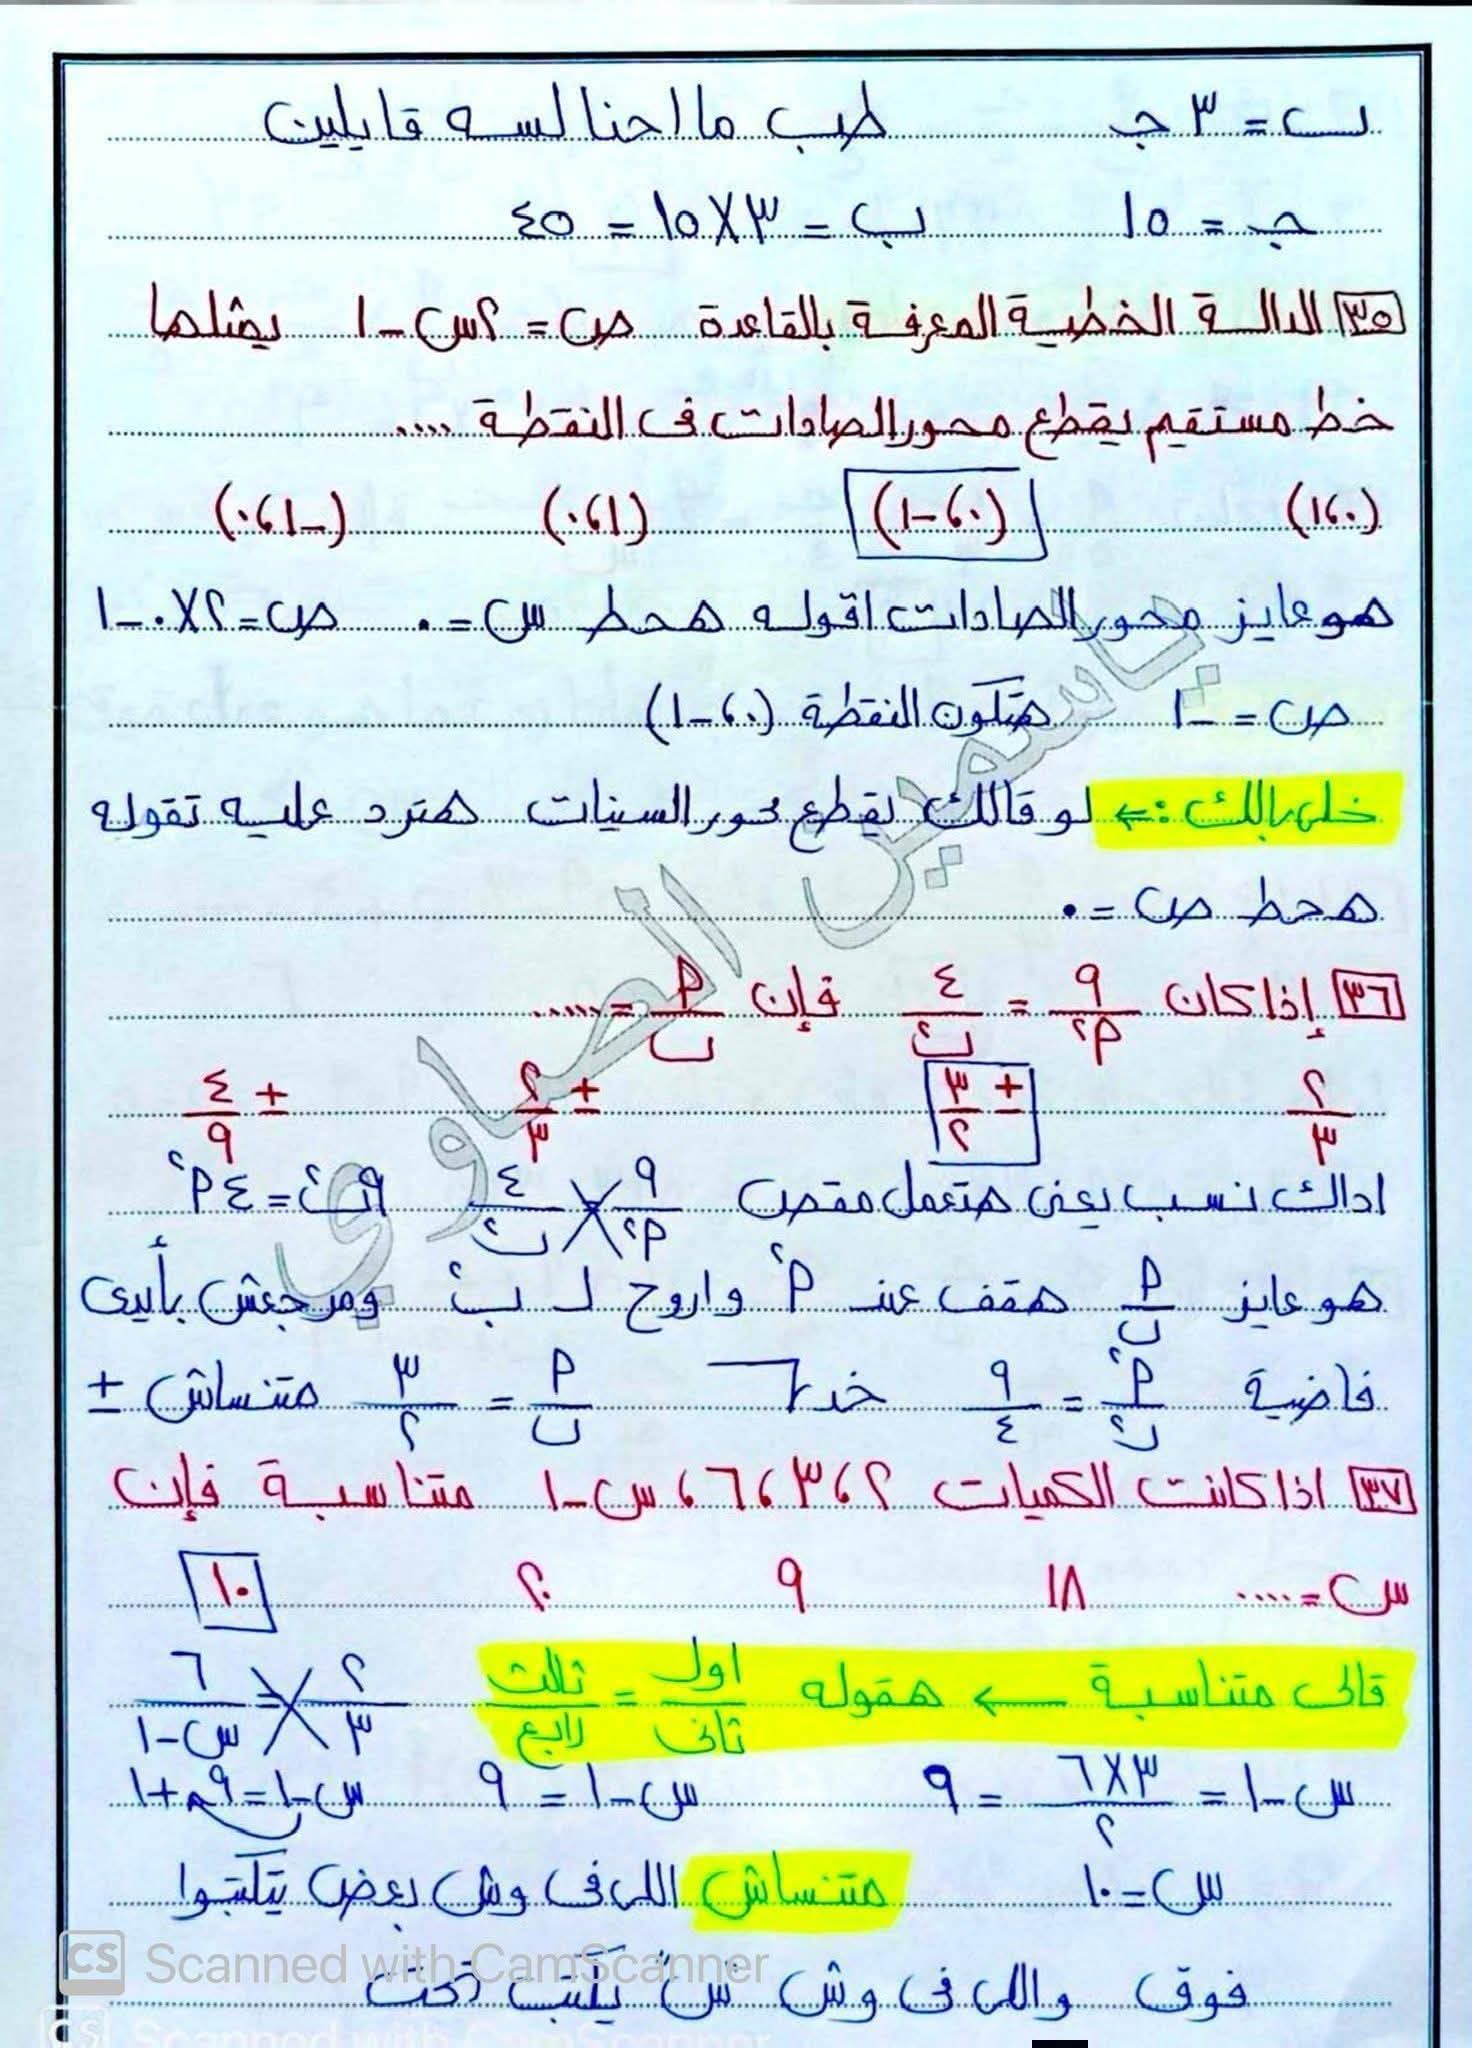 ب = ٣ جـ    طب ما احنا لسه قايلين
جـ = ١٥    ب = ٣ × ١٥ = ٤٥
٣٥ الدالة الخطية المعرفة بالقاعدة ص = ٢س - ١ يمثلها
خط مستقيم يقطع محور الصادات فى النقطة ....
(٠، ١)    (٠، -١)    (١، ٠)    (-١، ٠)
هو عايز محور الصادات اقوله هحط س = ٠    ص = ٢ × ٠ - ١
ص = -١    هتكون النقطة (٠، -١)
خلى بالك :← لو قالك يقطع محور السينات هترد عليه تقوله
هحط ص = ٠
٣٦ إذا كان ٩/أ² = ٤/ب² فإن أ/ب = .....
٢/٣    ± ٣/٢    ± ٢/٣    ± ٤/٩
اداك نسب يعنى هتعمل مقص ٩/أ² × ٤/ب²    ٩ب² = ٤أ²
هو عايز أ/ب هقف عند أ² واروح لـ ب² ومرجعش بأيدى
فاضية أ²/ب² = ٩/٤ خد √ أ/ب = ٣/٢ متنساش ±
٣٧ اذا كانت الكميات ٢، ٣، ٦، س - ١ متناسبة فإن
س = ....    ١٨    ٩    ٢٠    ١٠
قالى متناسبة ← هقوله اول/تانى = ثالث/رابع    ٢/٣ = ٦/س - ١
س - ١ = ٣ × ٦/٢ = ٩    س - ١ = ٩    س - ١ = ٩ + ١
س = ١٠    متنساش اللى فى وش بعض يتكتبوا
فوق واللى فى وش "س" يتكتب تحت
ياسمين الصاوي
CS Scanned with CamScanner
CS Scanned with CamScanner